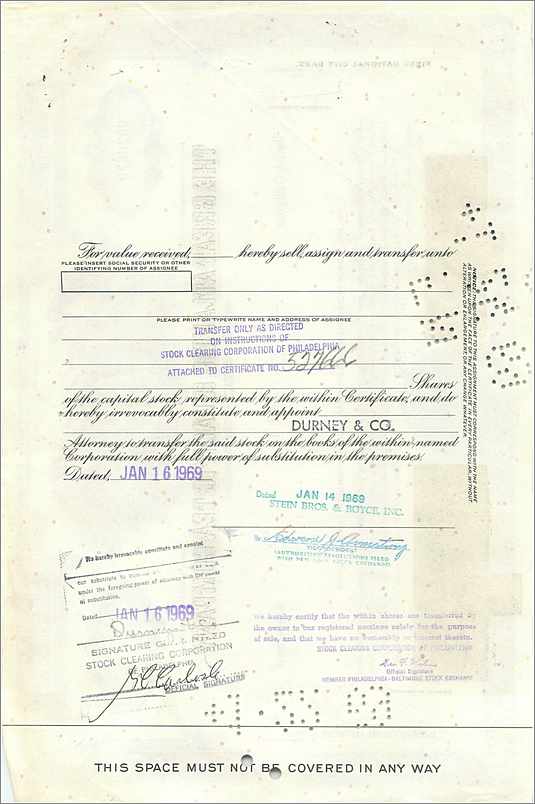 For value received, hereby sell, assign and transfer unto
PLEASE INSERT SOCIAL SECURITY OR OTHER
IDENTIFYING NUMBER OF ASSIGNEE
PLEASE PRINT OR TYPEWRITE NAME AND ADDRESS OF ASSIGNEE
TRANSFER ONLY AS DIRECTED
ON INSTRUCTIONS OF
STOCK CLEARING CORPORATION OF PHILADELPHIA
ATTACHED TO CERTIFICATE NO.
Shares
of the capital stock represented by the within Certificate, and do
hereby irrevocably constitute and appoint
DURNEY & CO.
Attorney to transfer the said stock on the books of the within-named
Corporation with full power of substitution in the premises.
Dated, JAN 16 1969
NOTICE: THE SIGNATURE TO THIS ASSIGNMENT MUST CORRESPOND WITH THE NAME
AS WRITTEN UPON THE FACE OF THE CERTIFICATE IN EVERY PARTICULAR, WITHOUT
ALTERATION OR ENLARGEMENT OR ANY CHANGE WHATEVER.
Dated JAN 14 1969
STEIN BROS. & BOYCE, INC.
By Edward J. Armstrong
We hereby irrevocably constitute and appoint
our substitute to
under the foregoing power of attorney with
of substitution.
Dated JAN 16 1969
SIGNATURE GUAR. & FILED
STOCK CLEARING CORPORATION
OFFICIAL SIGNATURE
We hereby certify that the within shares are transferred by
the owner to our registered nominee solely for the purpose
of sale, and that we have no ownership or interest therein.
STOCK CLEARING CORPORATION OF PHILADELPHIA
Official Signature
MEMBER PHILADELPHIA-BALTIMORE STOCK EXCHANGE
THIS SPACE MUST NOT BE COVERED IN ANY WAY